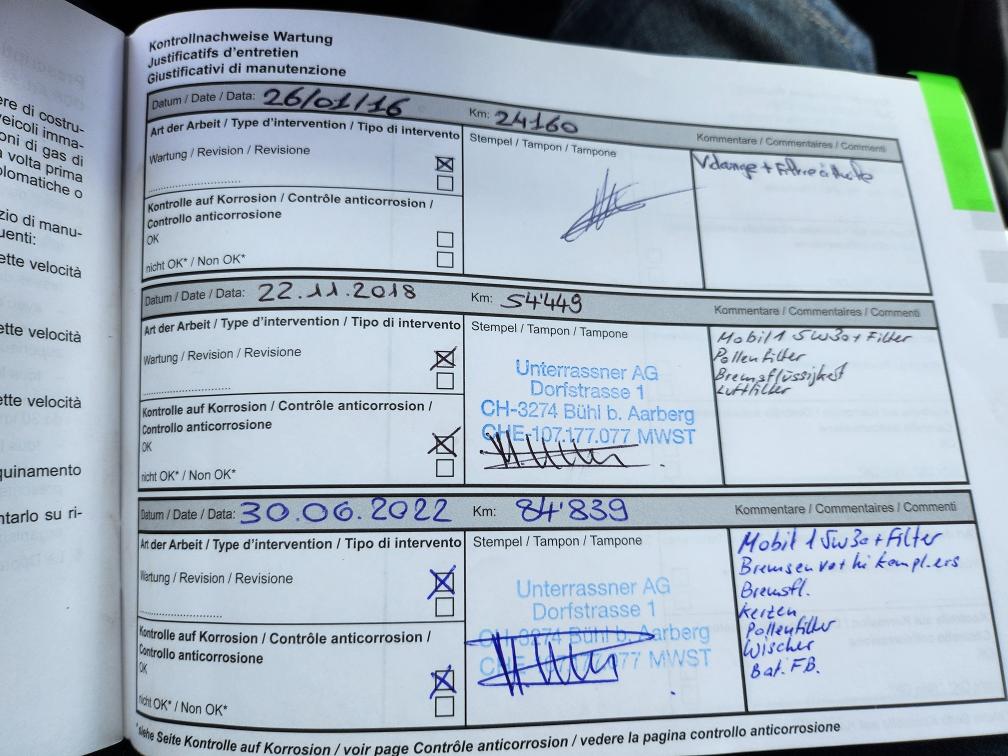 ere di costru-
veicoli imma-
oni di gas di
a volta prima
plomatiche o
zio di manu-
uenti:
ette velocità
ette velocità
ette velocità
quinamento
ntarlo su ri-
Kontrollnachweise Wartung
Justificatifs d'entretien
Giustificativi di manutenzione
Datum / Date / Data: 26/01/16 Km: 24160
Art der Arbeit / Type d'intervention / Tipo di intervento
Stempel / Tampon / Tampone
Kommentare / Commentaires / Commenti
Wartung / Revision / Revisione
Vdange + Filtre à
Kontrolle auf Korrosion / Contrôle anticorrosion /
Controllo anticorrosione
OK
nicht OK* / Non OK*
Datum / Date / Data: 22.11.2018 Km: 54'449
Kommentare / Commentaires / Commenti
Art der Arbeit / Type d'intervention / Tipo di intervento
Stempel / Tampon / Tampone
Wartung / Revision / Revisione
Mobil 1 5w30 + Filter
Pollenfilter
Bremsflüssigkeit
Luftfilter
Unterrassner AG
Dorfstrasse 1
CH-3274 Bühl b. Aarberg
CHE-107.177.077 MWST
Kontrolle auf Korrosion / Contrôle anticorrosion /
Controllo anticorrosione
OK
nicht OK* / Non OK*
Datum / Date / Data: 30.06.2022 Km: 84'839
Kommentare / Commentaires / Commenti
Art der Arbeit / Type d'intervention / Tipo di intervento
Stempel / Tampon / Tampone
Wartung / Revision / Revisione
Mobil 1 5w30 + Filter
Bremsen vo + hi kompl. ers
Bremsfl.
Kerzen
Pollenfilter
Wischer
Bat. FB.
Unterrassner AG
Dorfstrasse 1
CH-3274 Bühl b. Aarberg
CHE-107.177.077 MWST
Kontrolle auf Korrosion / Contrôle anticorrosion /
Controllo anticorrosione
OK
nicht OK* / Non OK*
*siehe Seite Kontrolle auf Korrosion / voir page Contrôle anticorrosion / vedere la pagina controllo anticorrosione